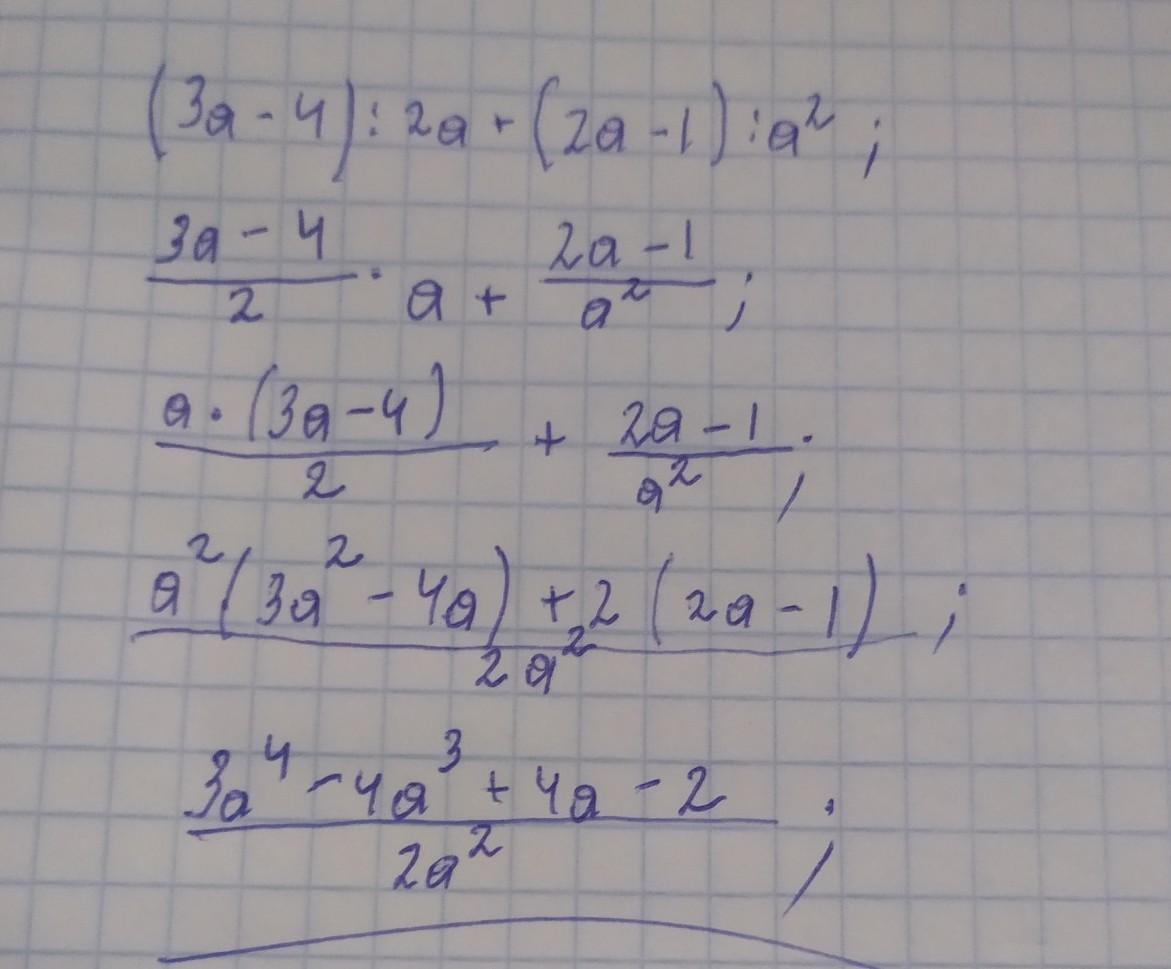 (3a - 4) : 2a + (2a - 1) : a² ;
\frac{3a - 4}{2} · a + \frac{2a - 1}{a²} ;
\frac{a · (3a - 4)}{2} + \frac{2a - 1}{a²} ;
\frac{a²(3a² - 4a) + 2(2a - 1)}{2a²} ;
\frac{3a⁴ - 4a³ + 4a - 2}{2a²} ;